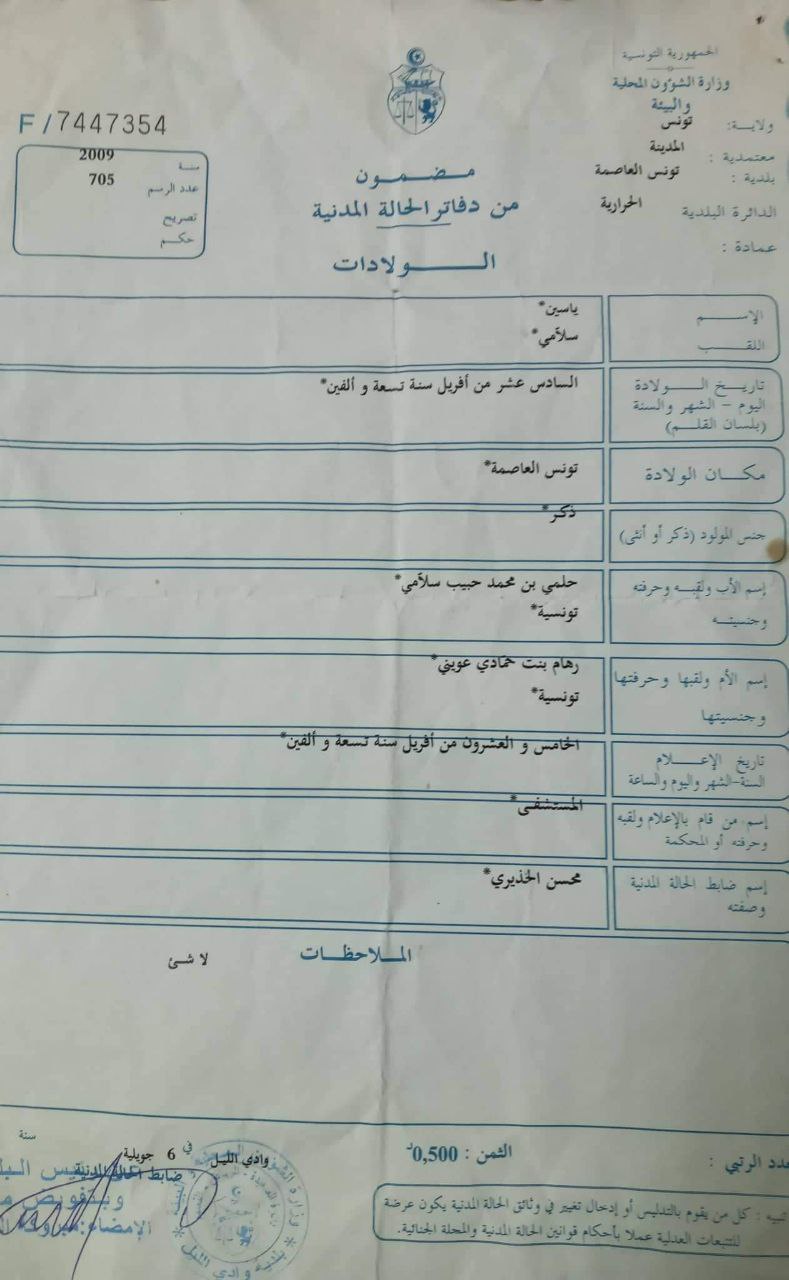 الجمهورية التونسية
وزارة الشؤون المحلية
والبيئة
ولاية: تونس
معتمدية : المدينة
بلدية : تونس العاصمة
الدائرة البلدية الحرايرية
عمادة :
F/7447354
سنة 2009
عدد الرسم 705
تصريح
حكم
مضمون
من دفاتر الحالة المدنية
الولادات
الإسم ياسين*
اللقب سلاّمي*
تاريخ الولادة السادس عشر من أفريل سنة تسعة و ألفين*
اليوم – الشهر والسنة
(بلسان القلم)
مكان الولادة تونس العاصمة*
جنس المولود (ذكر أو أنثى) ذكر*
إسم الأب ولقبه وحرفته حلمي بن محمد حبيب سلاّمي*
وجنسيته تونسية*
إسم الأم ولقبها وحرفتها رهام بنت حمادي عويني*
وجنسيتها تونسية*
تاريخ الإعلام الخامس و العشرون من أفريل سنة تسعة و ألفين*
السنة-الشهر واليوم والساعة
إسم من قام بالإعلام ولقبه المستشفى*
وحرفته أو المحكمة
إسم ضابط الحالة المدنية محسن الخذيري*
وصفته
الملاحظات لا شئ
عدد الرتبي :
الثمن : 0,500د
وادي الليل في 6 جويلية سنة
ضابط الحالة المدنية
الإمضاء:
تنبيه : كل من يقوم بالتدليس أو إدخال تغيير في وثائق الحالة المدنية يكون عرضة
للتتبعات العدلية عملا بأحكام قوانين الحالة المدنية والمجلة الجنائية.
بلدية وادي الليل